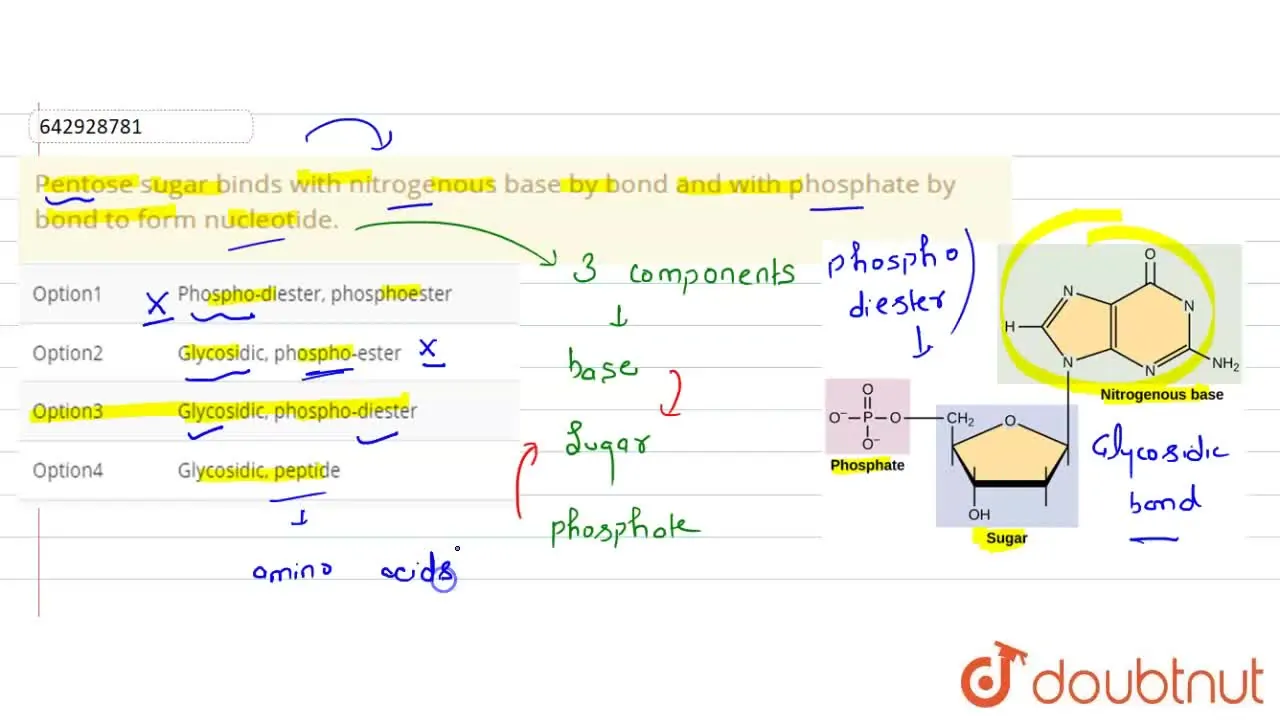 642928781
Pentose sugar binds with nitrogenous base by bond and with phosphate by
bond to form nucleotide.
Option1 Phospho-diester, phosphoester
X
Option2 Glycosidic, phospho-ester X
Option3 Glycosidic, phospho-diester
Option4 Glycosidic, peptide
amino acids
3 components
base
Sugar
phosphate
phospho
diester
O
N
N
H
N
N
NH₂
Nitrogenous base
O
O⁻ P O CH₂
O⁻
Phosphate
O
OH
Sugar
Glycosidic
bond
doubtnut